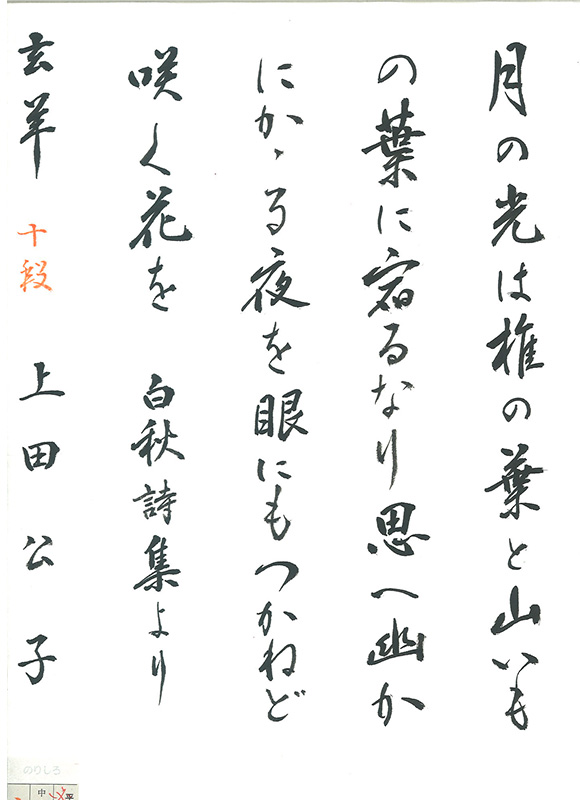 月の光は椎の葉と山いも
の葉に宿るなり思へ幽か
にかゝる夜を眼にもつかねど
咲く花を 白秋詩集より
玄羊 十段 上田公子
のりしろ
中
平